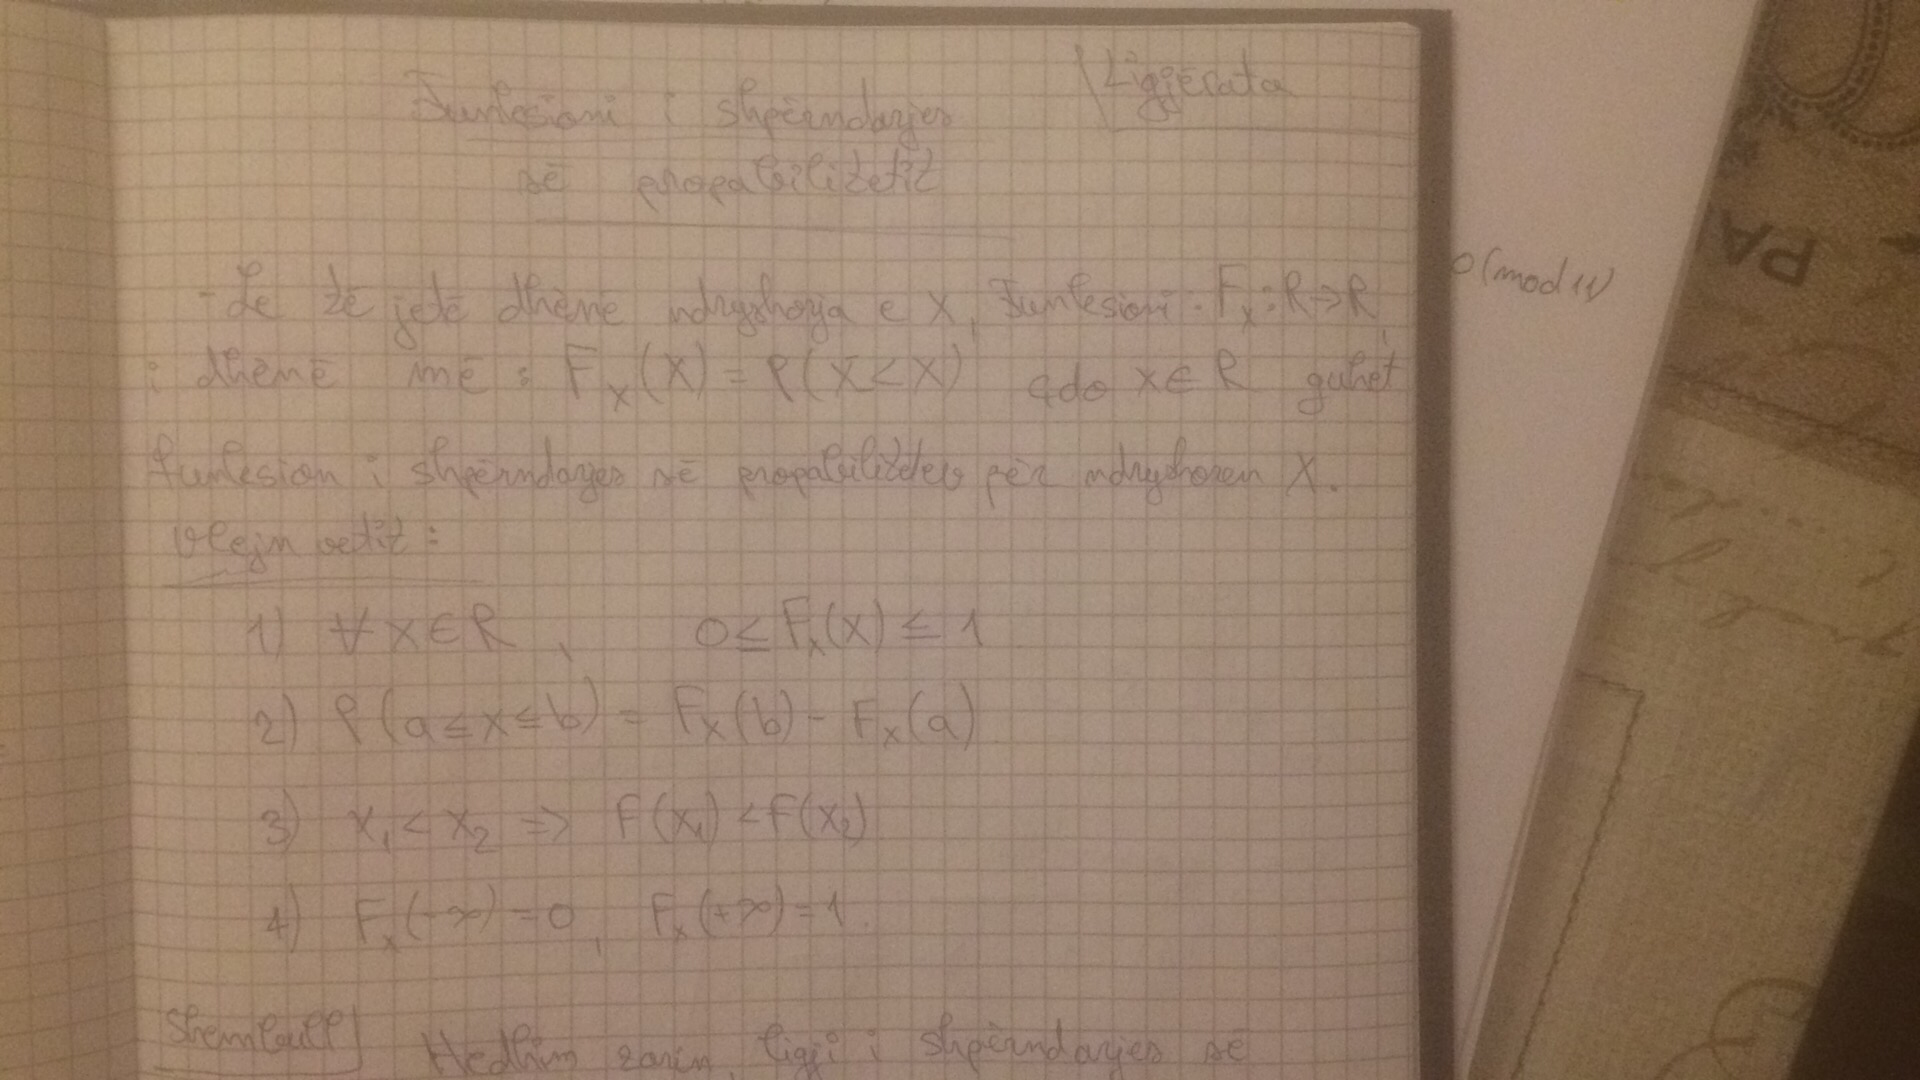 Ligjërata
Funksioni i shpërndarjes
së propabilitetit
- Le të jetë dhënë ndryshorja e X, Funksioni : Fx : R→R,
i dhënë më : Fx(X) = P(X<X) çdo x∈R quhet
funksion i shpërndarjes së propabilitetes për ndryshoren X.
Vlejn vetit :
1) ∀ x∈R , 0≤Fx(x) ≤ 1
2) P(a≤x≤b) = Fx(b) - Fx(a)
3) x₁ < x₂ => F(x₁) <F(x₂)
4) Fx(-∞) = 0, Fx(+∞) = 1.
Shembull] Hedhim zarin, ligji i shpërndarjes së
0 (mod 11)
PA